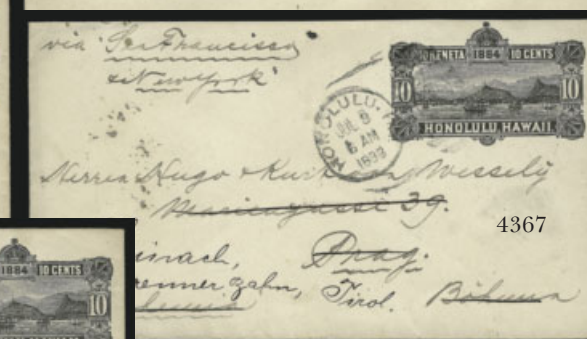 via San Francisco
& New York
KENETA 1884 10 CENTS
10 10
HONOLULU, HAWAII.
HONOLULU, H
JUL 8
6 AM
1893
Herren Hugo & Kurt Wessely
Mariengasse 39.
4367
Prag.
Tirol. Böhmen
1884 10 CENTS
10